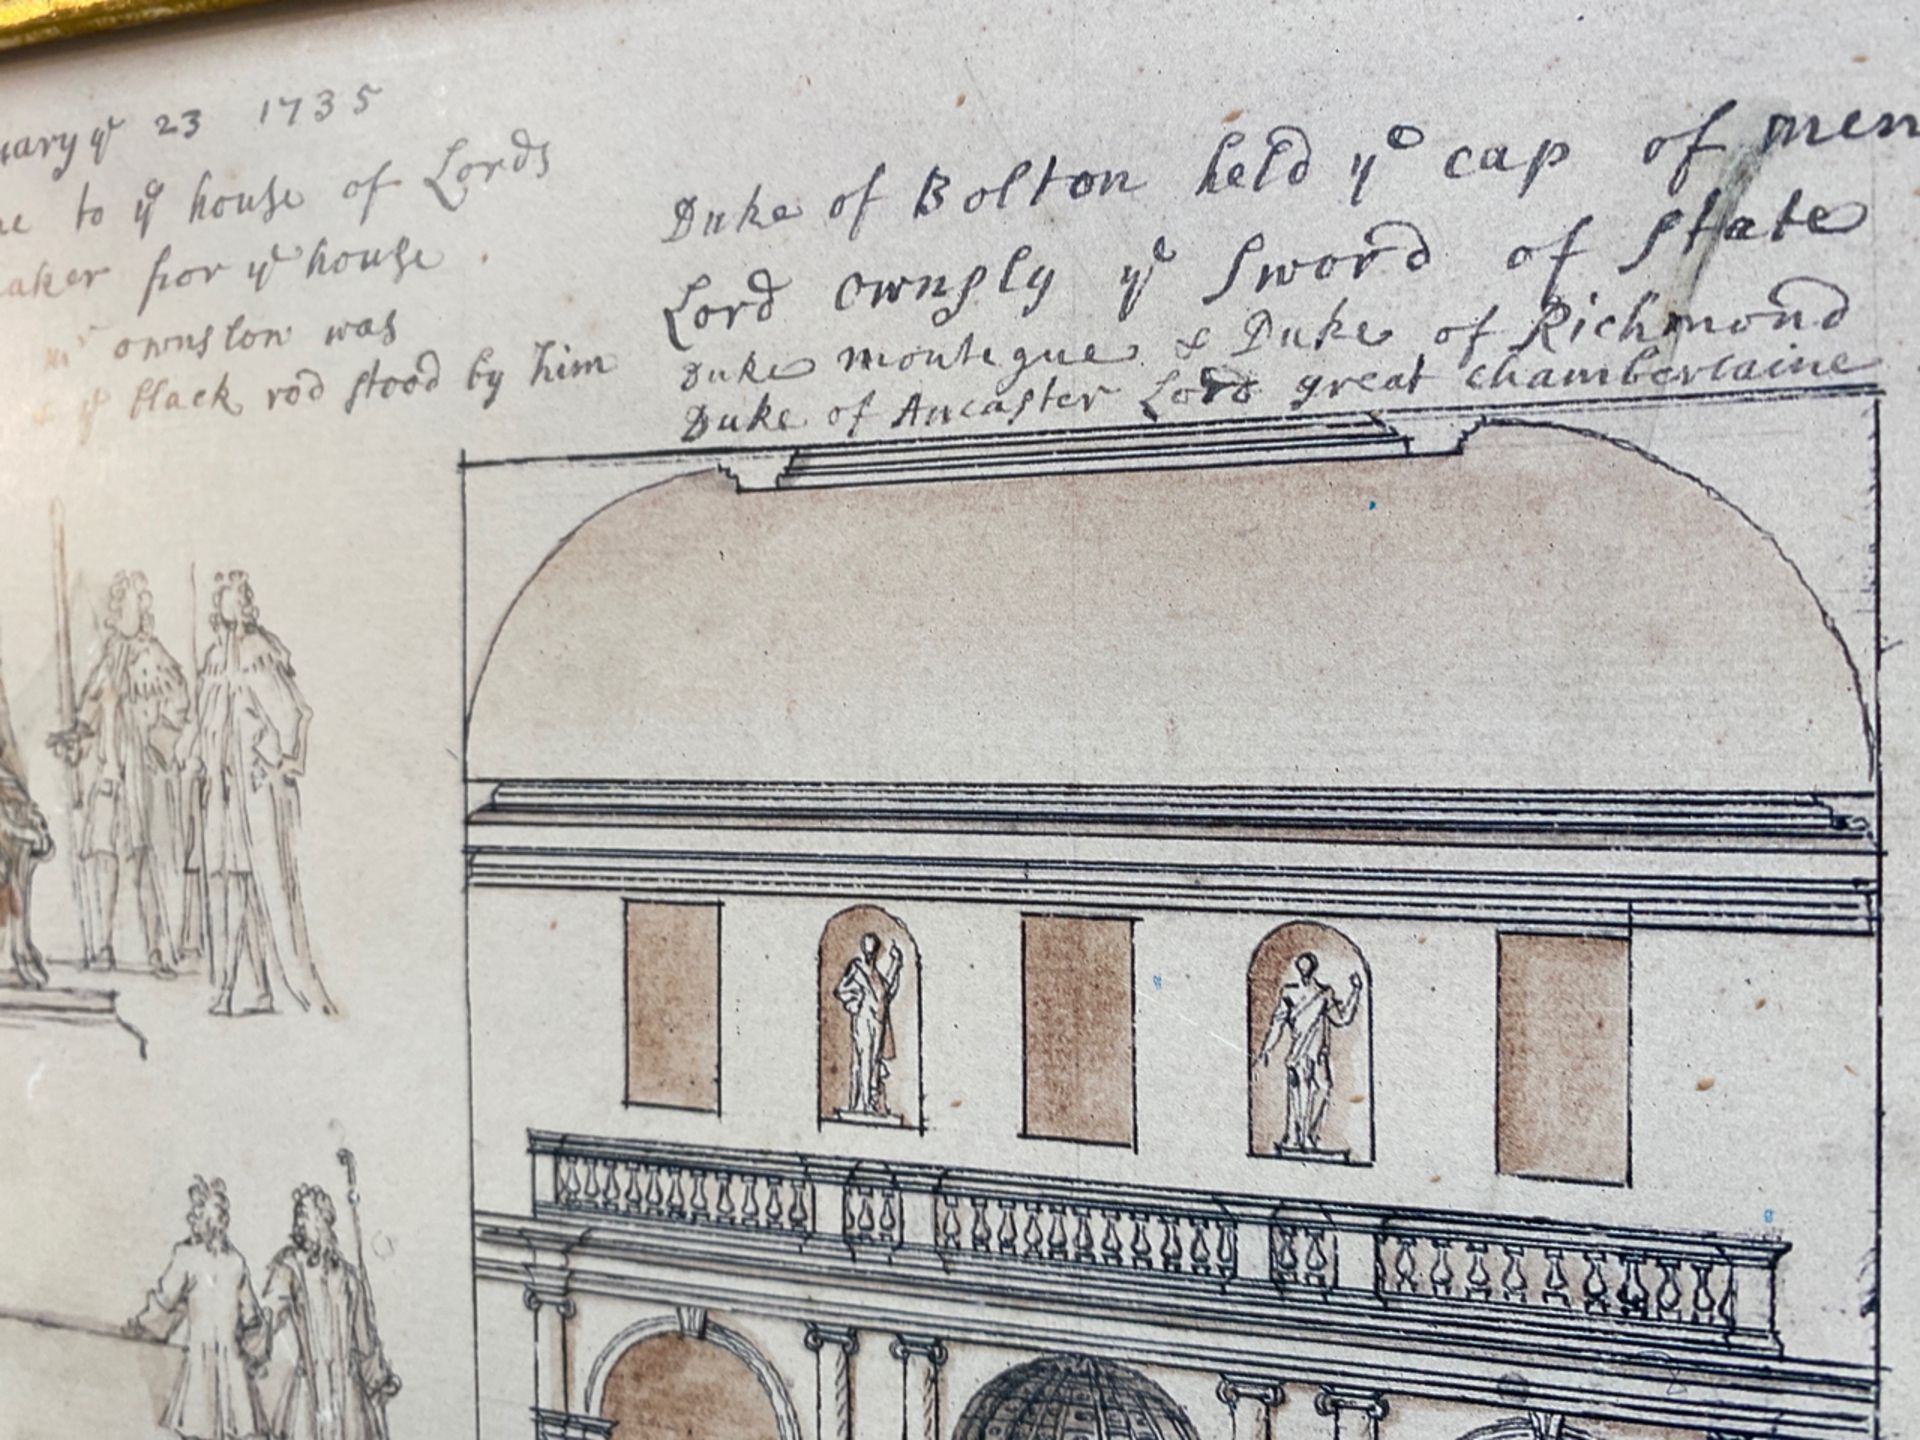 yᵉ 23 1735
to yᵉ house of Lords
aker for yᵉ house
mʳ ownslow was
& yᵉ black rod stood by him
Duke of Bolton held yᵉ cap of men
Lord ownsly yᵉ Sword of State
Duke montegue & Duke of Richmond
Duke of Ancaster Lord great chamberlaine